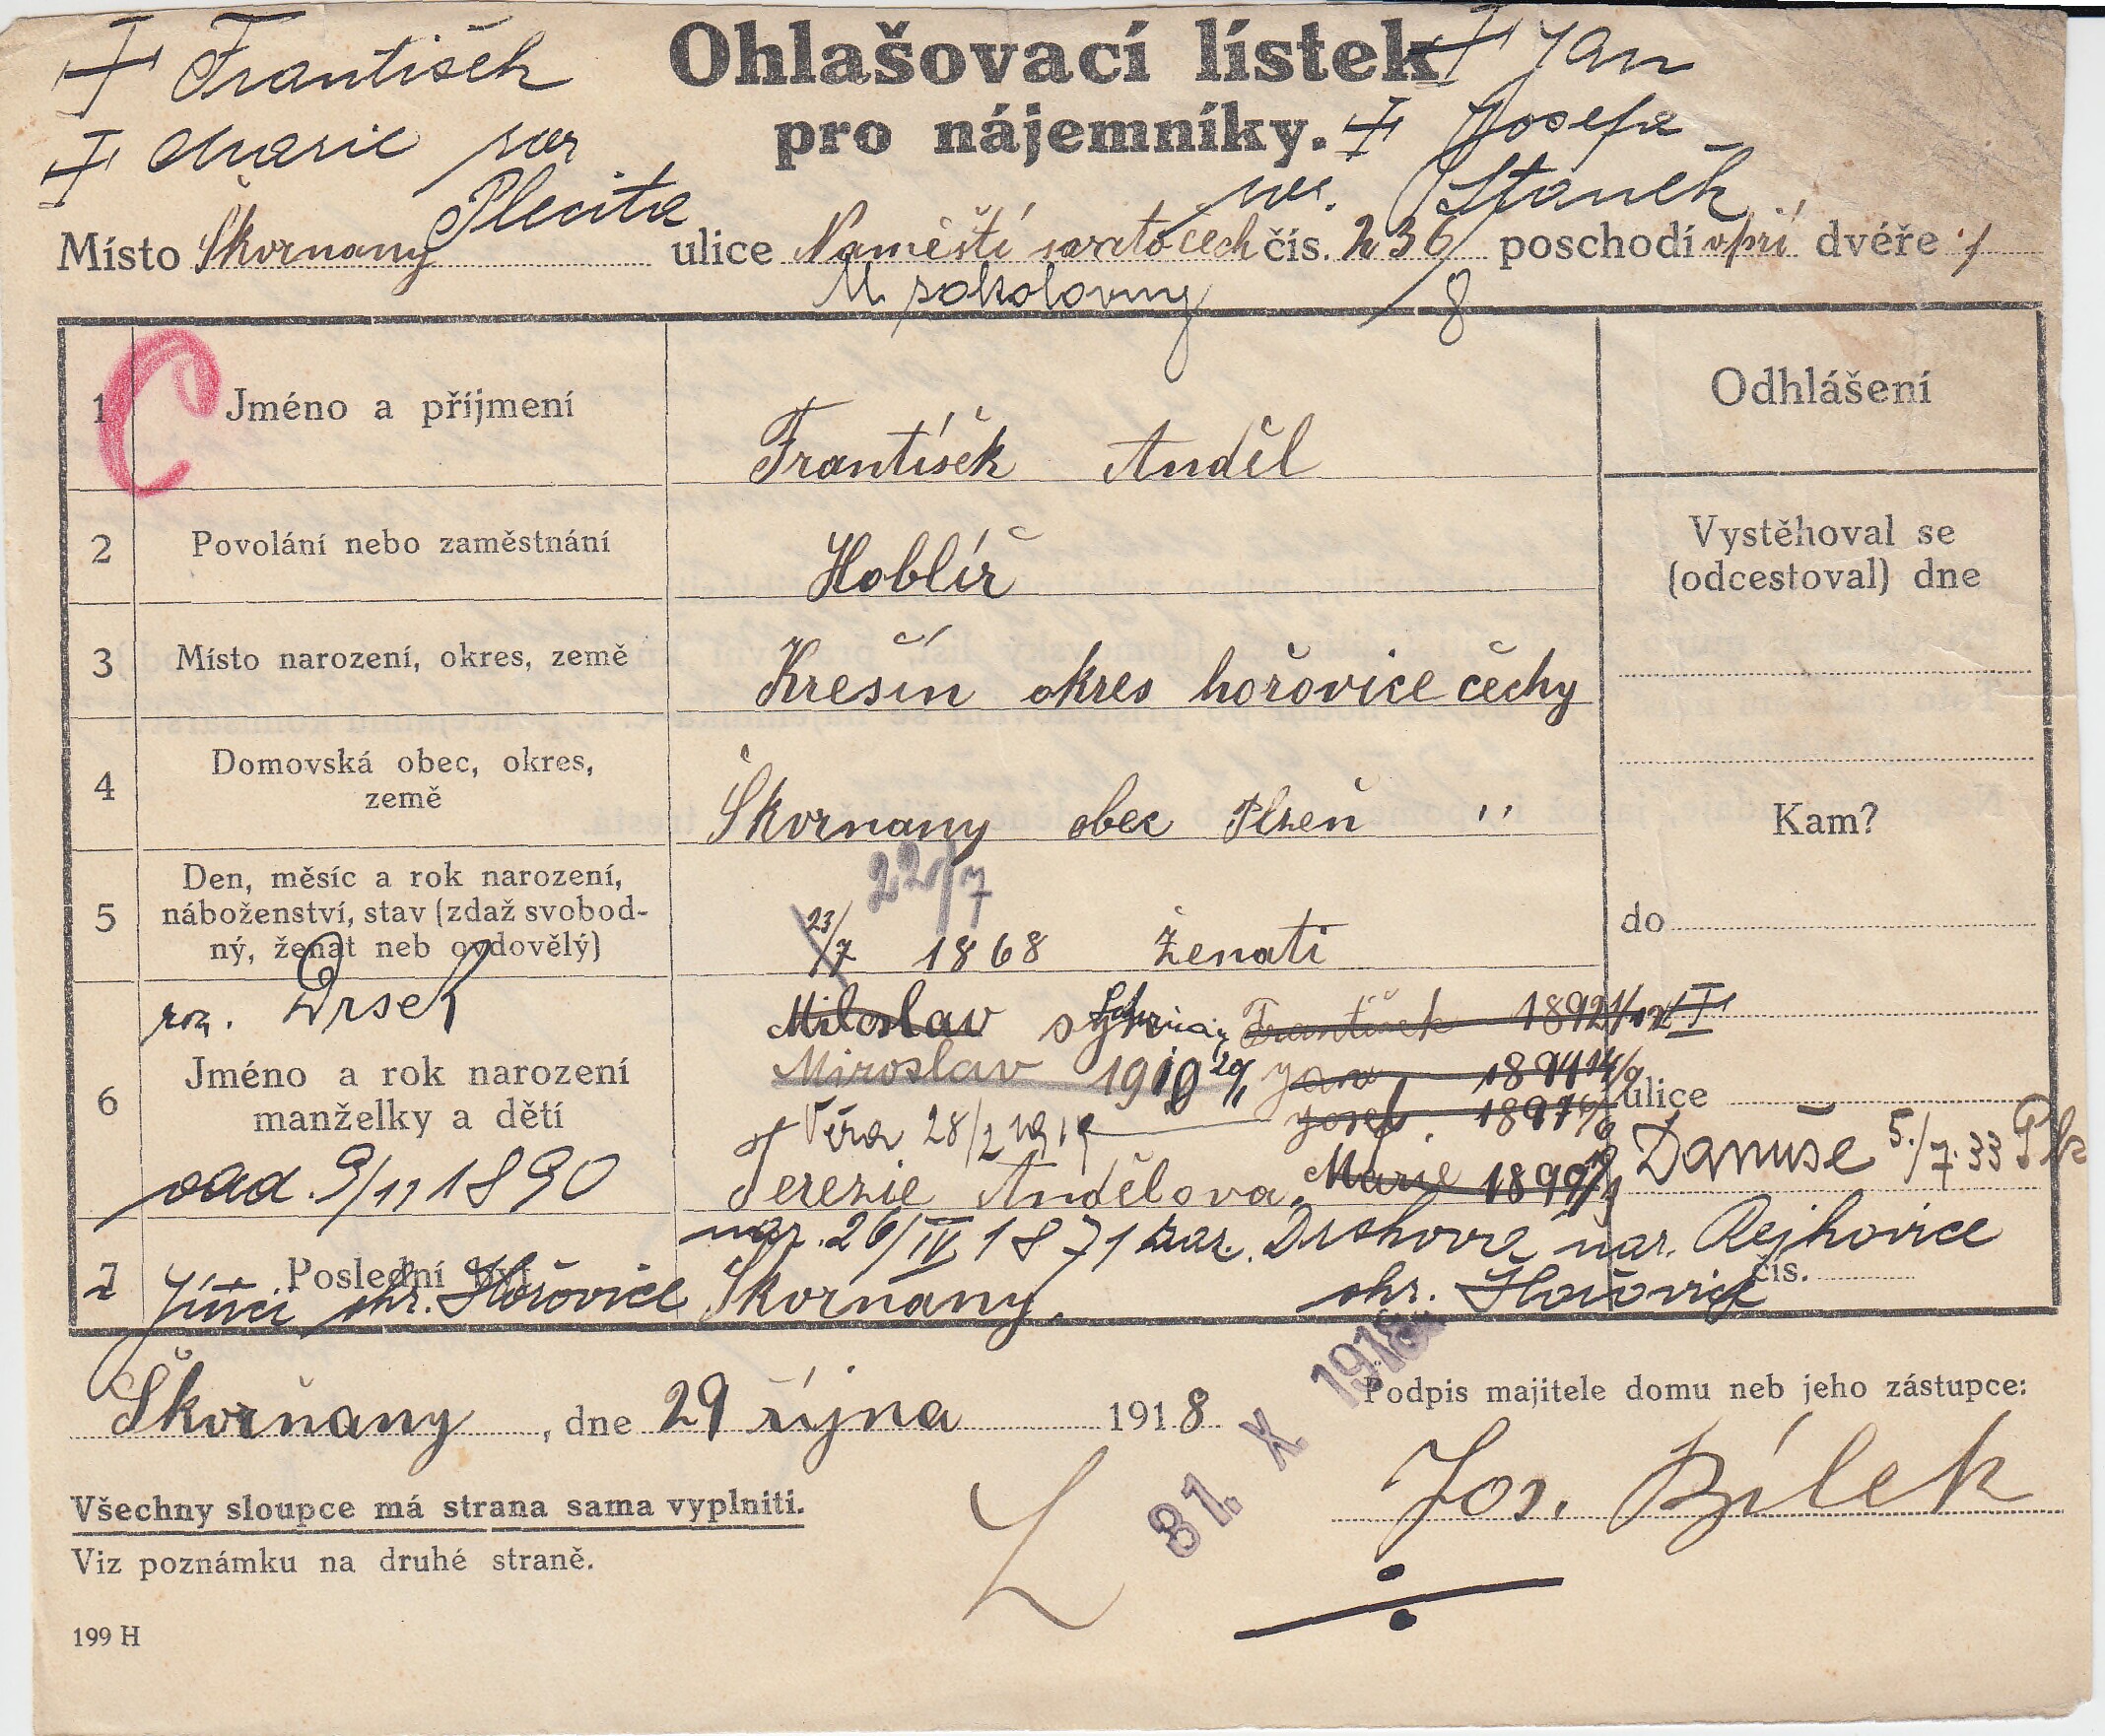 František
Marie
Plecitá
Ohlašovací lístek
pro nájemníky.
Jan
Josefa
Staněk
Místo Škvrnany ulice Naměstí svato čech čís. 236 poschodí v pří dvéře 1
U sokolovny 8
1 Jméno a příjmení František Anděl
2 Povolání nebo zaměstnání Hoblíř
3 Místo narození, okres, země Křešín okres hořovice čechy
4 Domovská obec, okres,
země
Škvrnany obec Plzeň ,,
5 Den, měsíc a rok narození,
náboženství, stav (zdaž svobod-
ný, ženat neb ovdovělý)
22/7
23/7 1868 Ženatí
6 roz. Drsek
Jméno a rok narození
manželky a dětí
odd. 9/11 1890
Miloslav František 1892
Miroslav 1910 Jan 1894
Věra 28/2 1919 Josef. 1897
Terezie Andělova. Marie 1899
nar. 26/IV 1871 nar. Rejhovice
okr. Hořovice
7 Poslední byt Škvrnany.
Jinci okr. Hořovice
Odhlášení
Vystěhoval se
(odcestoval) dne
Kam?
do
ulice
Danuše 5./7.33
čís.
Škvrňany, dne 29 října 1918
31. X 1918
Podpis majitele domu neb jeho zástupce:
Jos. Bílek
Všechny sloupce má strana sama vyplniti.
Viz poznámku na druhé straně.
199 H